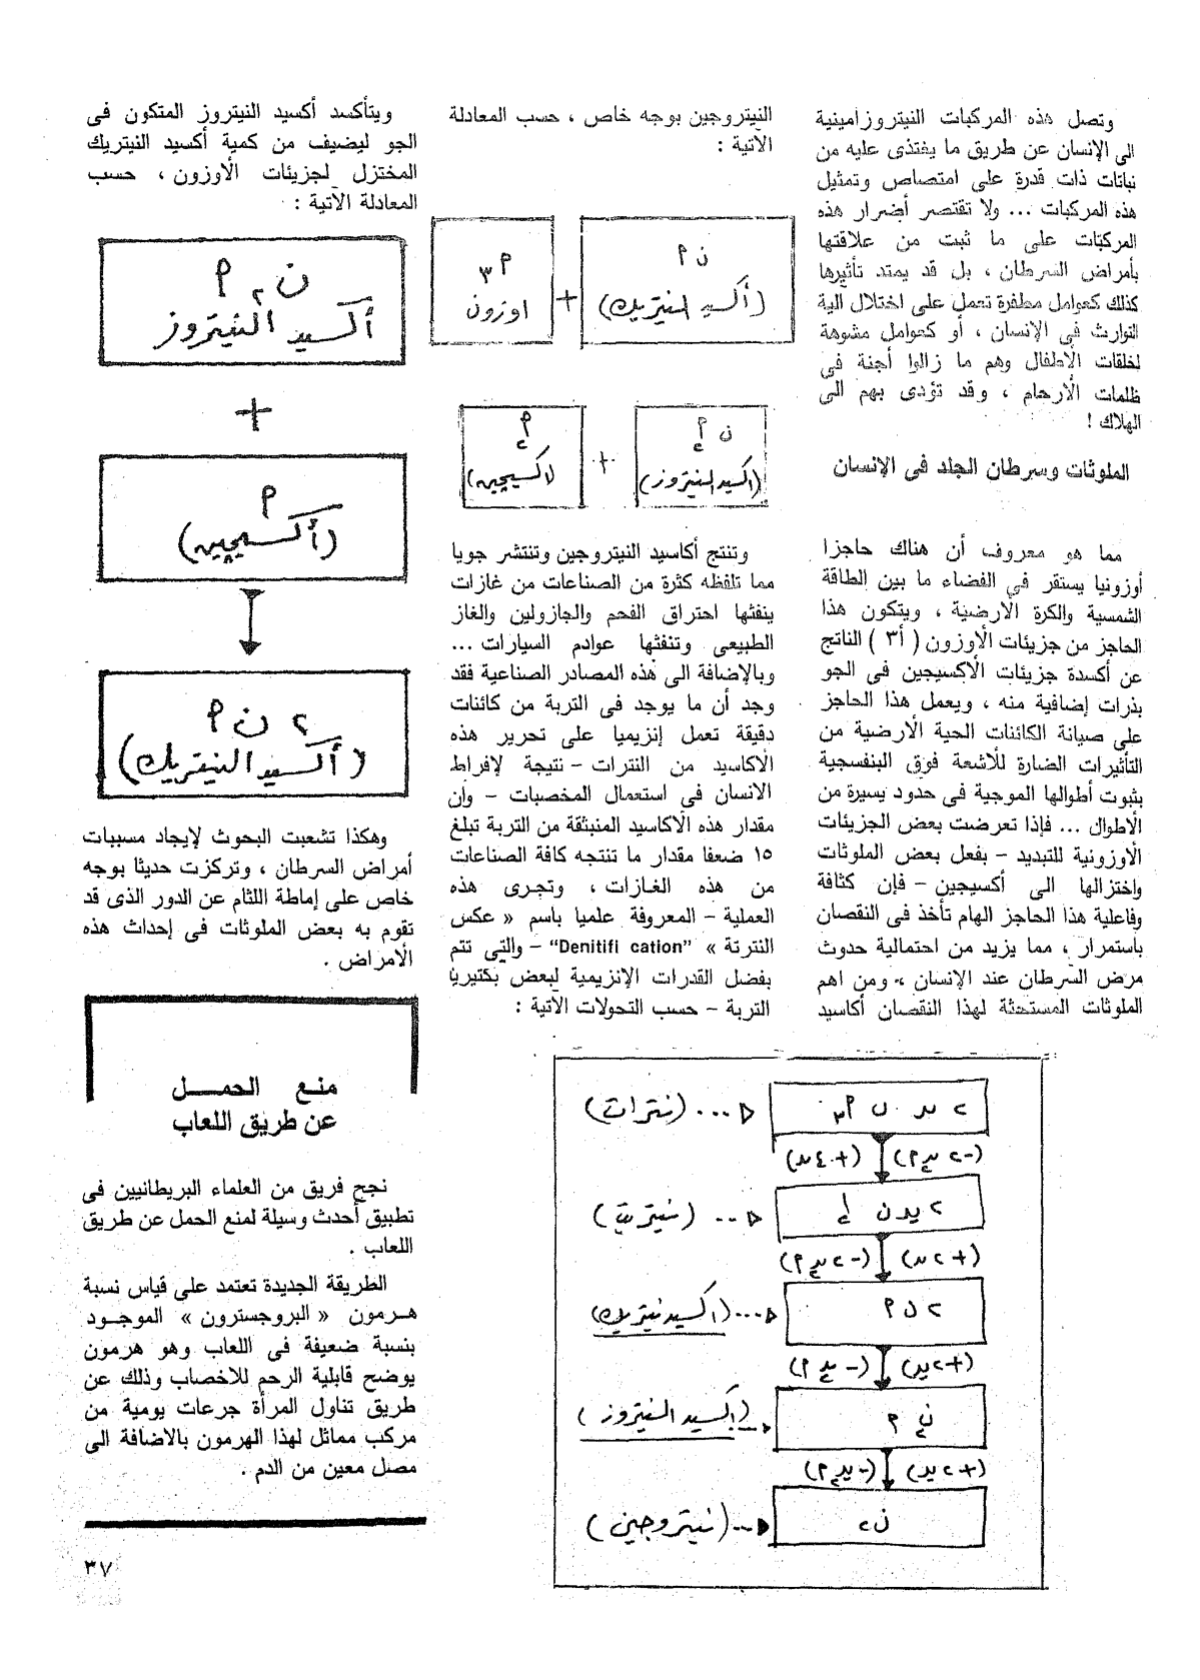 وتصل هذه المركبات النيتروزامينية
الى الإنسان عن طريق ما يغتذى عليه من
نباتات ذات قدرة على امتصاص وتمثيل
هذه المركبات ... ولا تقتصر أضرار هذه
المركبات على ما ثبت من علاقتها
بأمراض السرطان ، بل قد يمتد تأثيرها
كذلك كعوامل مطفرة تعمل على اختلال الية
التوارث فى الإنسان ، أو كعوامل مشوهة
لخلقات الأطفال وهم ما زالوا أجنة فى
ظلمات الأرحام ، وقد تؤدى بهم الى
الهلاك !
الملوثات وسرطان الجلد فى الإنسان
مما هو معروف أن هناك حاجزا
أوزونيا يستقر فى الفضاء ما بين الطاقة
الشمسية والكرة الأرضية ، ويتكون هذا
الحاجز من جزيئات الأوزون ( أ٣ ) الناتج
عن أكسدة جزيئات الأكسيجين فى الجو
بذرات إضافية منه ، ويعمل هذا الحاجز
على صيانة الكائنات الحية الأرضية من
التأثيرات الضارة للأشعة فوق البنفسجية
بثبوت أطوالها الموجية فى حدود يسيرة من
الأطوال ... فإذا تعرضت بعض الجزيئات
الأوزونية للتبديد - بفعل بعض الملوثات
واختزالها الى أكسيجين - فإن كثافة
وفاعلية هذا الحاجز الهام تأخذ فى النقصان
باستمرار ، مما يزيد من احتمالية حدوث
مرض السرطان عند الإنسان ، ومن اهم
الملوثات المستحثة لهذا النقصان أكاسيد
النيتروجين بوجه خاص ، حسب المعادلة
الآتية :
ن أ
(أكسيد النيتريك)
+
أ ٣
اوزون
ن أ ٢
(اكسيد النيتروز)
+
أ ٢
(اكسيجين)
وتنتج أكاسيد النيتروجين وتنتشر جويا
مما تلفظه كثرة من الصناعات من غازات
ينفثها احتراق الفحم والجازولين والغاز
الطبيعى وتنفثها عوادم السيارات ...
وبالإضافة الى هذه المصادر الصناعية فقد
وجد أن ما يوجد فى التربة من كائنات
دقيقة تعمل إنزيميا على تحرير هذه
الأكاسيد من النترات - نتيجة لإفراط
الانسان فى استعمال المخصبات - وان
مقدار هذه الأكاسيد المنبثقة من التربة تبلغ
١٥ ضعفا مقدار ما تنتجه كافة الصناعات
من هذه الغازات ، وتجرى هذه
العملية - المعروفة علميا باسم « عكس
النترتة » “Denitifi cation” - والتى تتم
بفضل القدرات الإنزيمية لبعض بكتيريا
التربة - حسب التحولات الآتية :
٢ يد ن أ٣ ... (نترات)
(-٢ يد٢ أ) (+٤ يد)
٢ يد ن أ٢ ... (نيتريت)
(+٢ يد) (-٢ يد٢ أ)
٢ ن أ ... (اكسيد نيتريك)
(+٢ يد) (- يد٢ أ)
ن٢ أ ... (أكسيد النيتروز)
(+٢ يد) (- يد٢ أ)
ن٢ ... (نيتروجين)
ويتأكسد أكسيد النيتروز المتكون فى
الجو ليضيف من كمية أكسيد النيتريك
المختزل لجزيئات الأوزون ، حسب
المعادلة الآتية :
ن ٢ أ
أكسيد النيتروز
+
أ
(أكسيجين)
٢ ن أ
(أكسيد النيتريك)
وهكذا تشعبت البحوث لإيجاد مسببات
أمراض السرطان ، وتركزت حديثا بوجه
خاص على إماطة اللثام عن الدور الذى قد
تقوم به بعض الملوثات فى إحداث هذه
الأمراض .
منـع الحمـــل
عن طريق اللعاب
نجح فريق من العلماء البريطانيين فى
تطبيق أحدث وسيلة لمنع الحمل عن طريق
اللعاب .
الطريقة الجديدة تعتمد على قياس نسبة
هـرمون « البروجسترون » الموجـود
بنسبة ضعيفة فى اللعاب وهو هرمون
يوضح قابلية الرحم للاخصاب وذلك عن
طريق تناول المرأة جرعات يومية من
مركب مماثل لهذا الهرمون بالاضافة الى
مصل معين من الدم .
٣٧